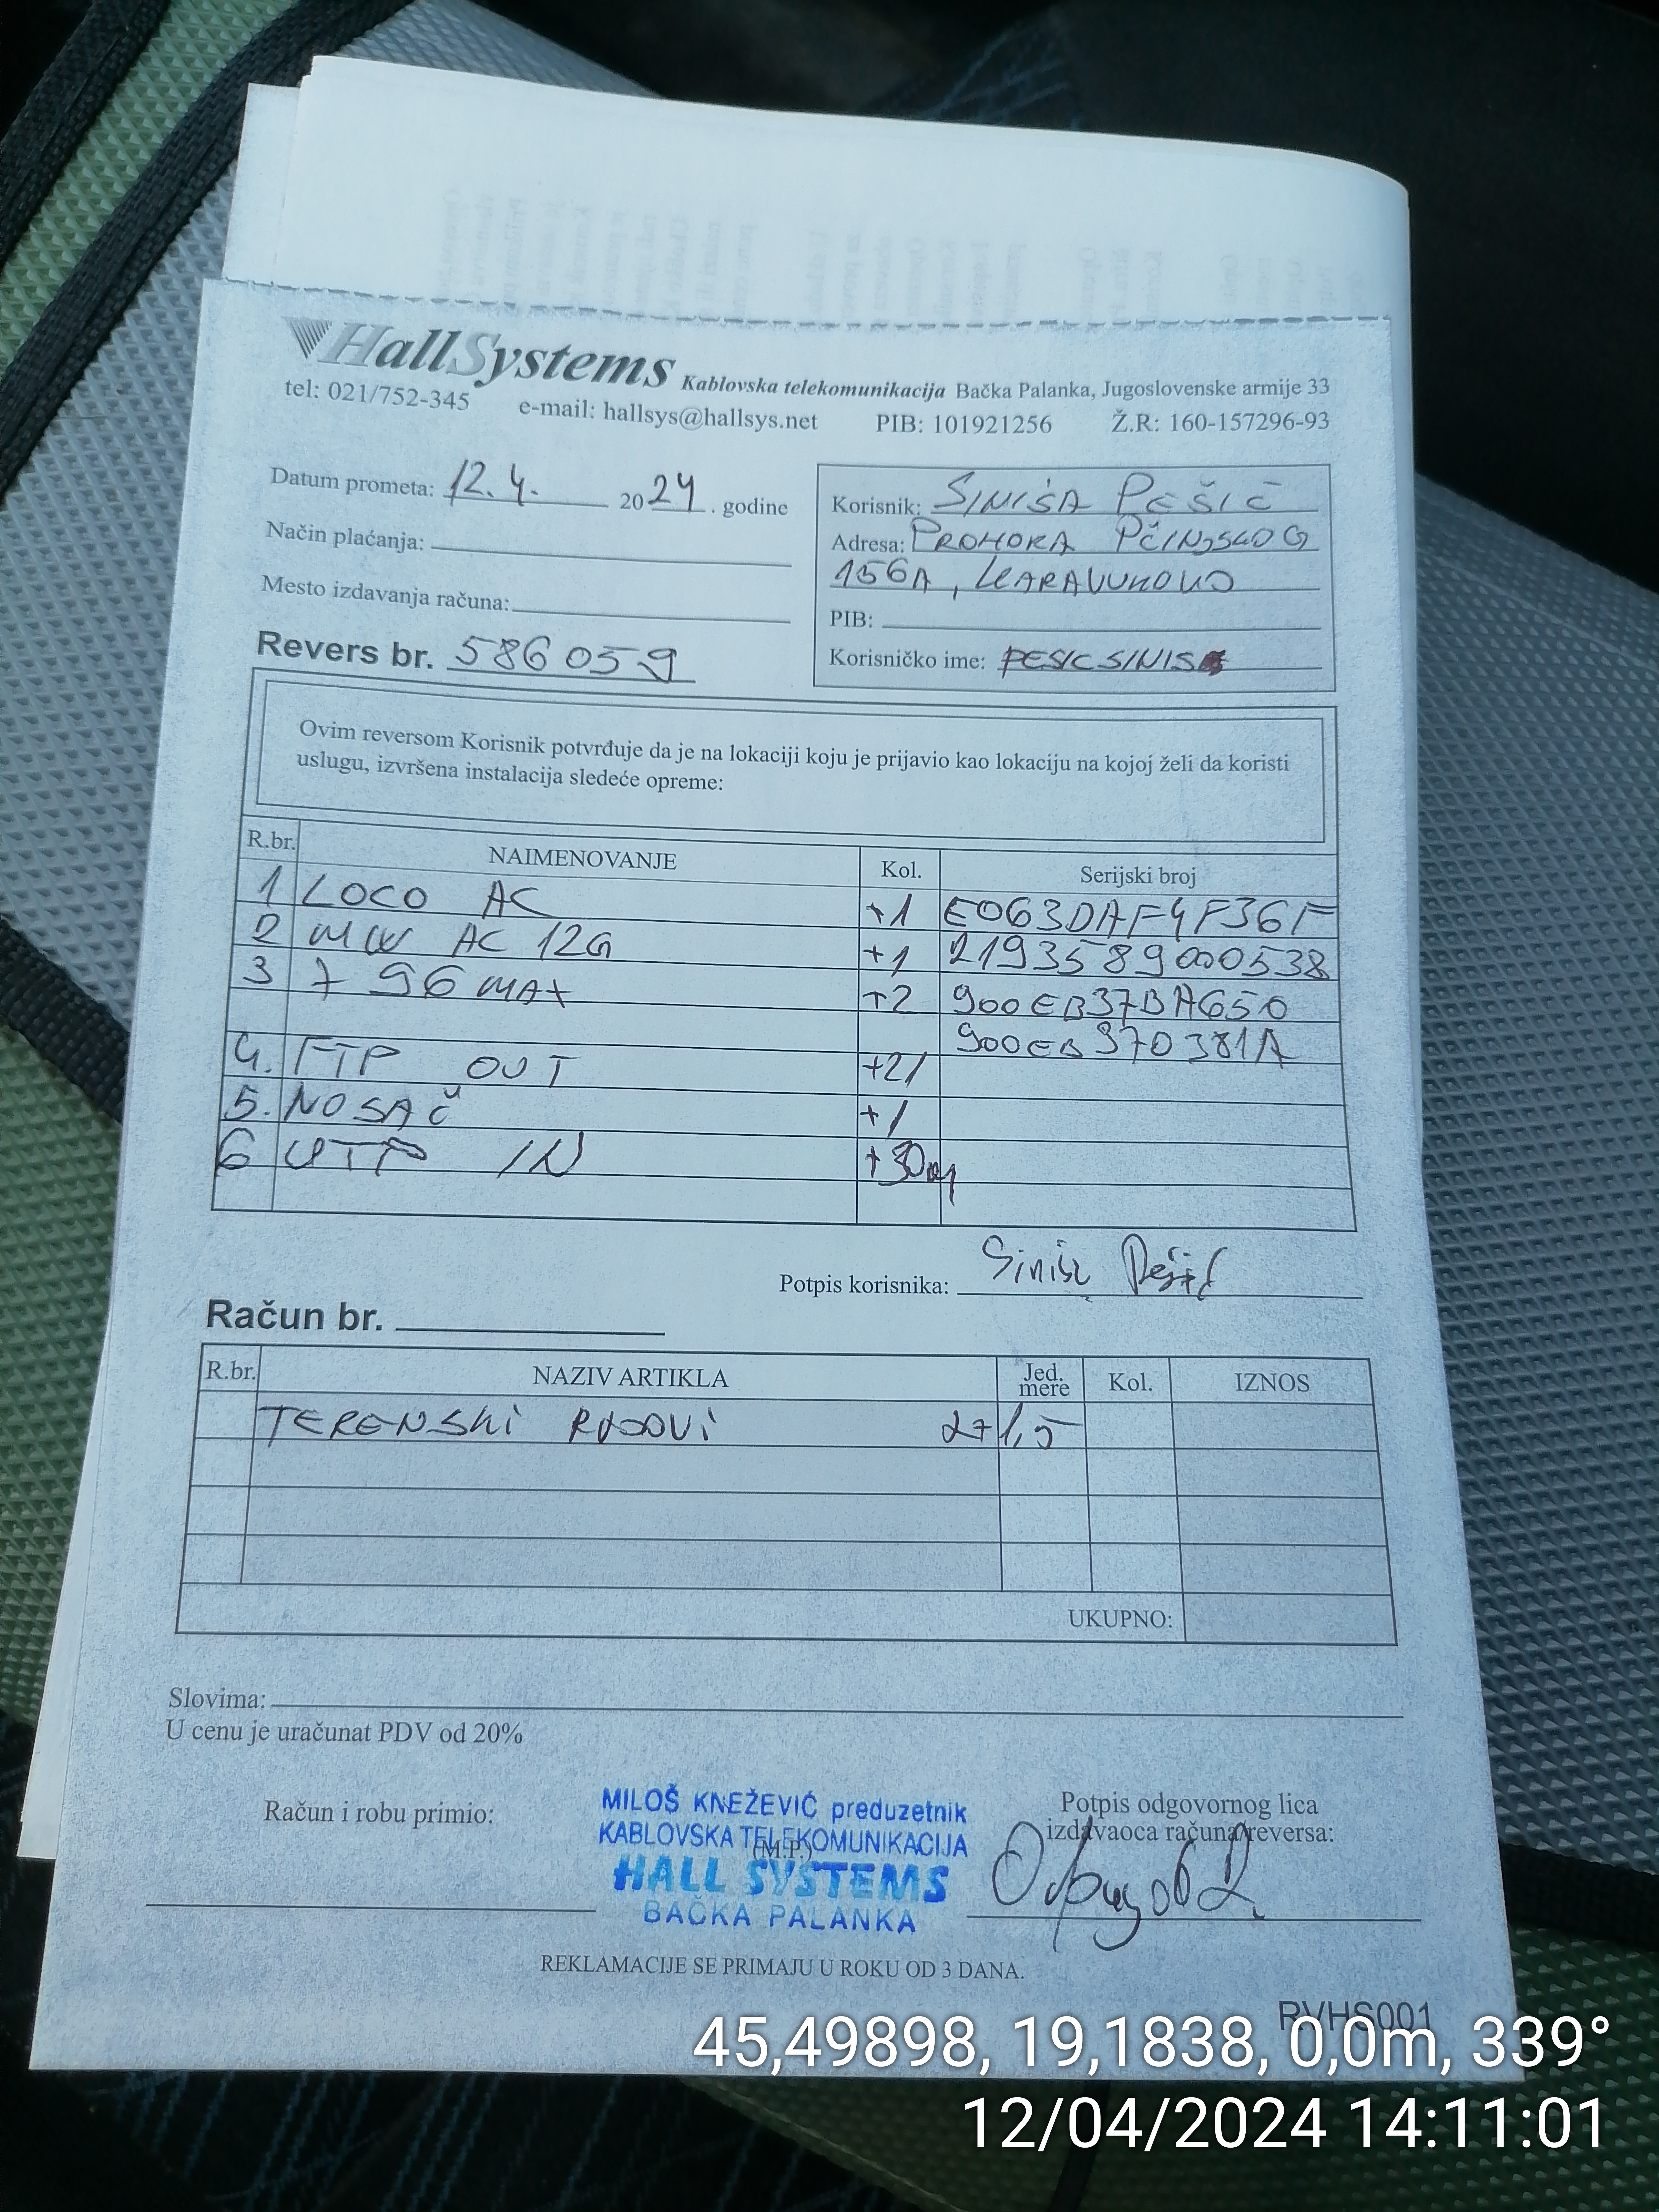 HallSystems Kablovska telekomunikacija Bačka Palanka, Jugoslovenske armije 33
tel: 021/752-345 e-mail: hallsys@hallsys.net PIB: 101921256 Ž.R: 160-157296-93
Datum prometa: 12.4. 2024. godine
Način plaćanja:
Mesto izdavanja računa:
Revers br. 586059
Korisnik: SINIŠA PEŠIĆ
Adresa: PROHORA PČINJSKOG
156A, KARAVUKOVO
PIB:
Korisničko ime: PESICSINISA
Ovim reversom Korisnik potvrđuje da je na lokaciji koju je prijavio kao lokaciju na kojoj želi da koristi
uslugu, izvršena instalacija sledeće opreme:
R.br. NAIMENOVANJE Kol. Serijski broj
1 LOCO AC +1 E063DAF4F36F
2 MW AC 12G +1 2193589000538
3 7 96 MAX +2 900EB37BA650
900EB370381A
4. FTP OUT +21
5. NOSAČ +1
6 UTP IN +30m
Potpis korisnika: Siniša Pešić
Račun br.
R.br. NAZIV ARTIKLA Jed. mere Kol. IZNOS
TERENSKI RADOVI 2+1,5
UKUPNO:
Slovima:
U cenu je uračunat PDV od 20%
Račun i robu primio:
MILOŠ KNEŽEVIĆ preduzetnik
KABLOVSKA TELEKOMUNIKACIJA
(M.P.)
HALL SYSTEMS
BAČKA PALANKA
Potpis odgovornog lica
izdavaoca računa/reversa:
REKLAMACIJE SE PRIMAJU U ROKU OD 3 DANA.
RVHS001
45,49898, 19,1838, 0,0m, 339°
12/04/2024 14:11:01